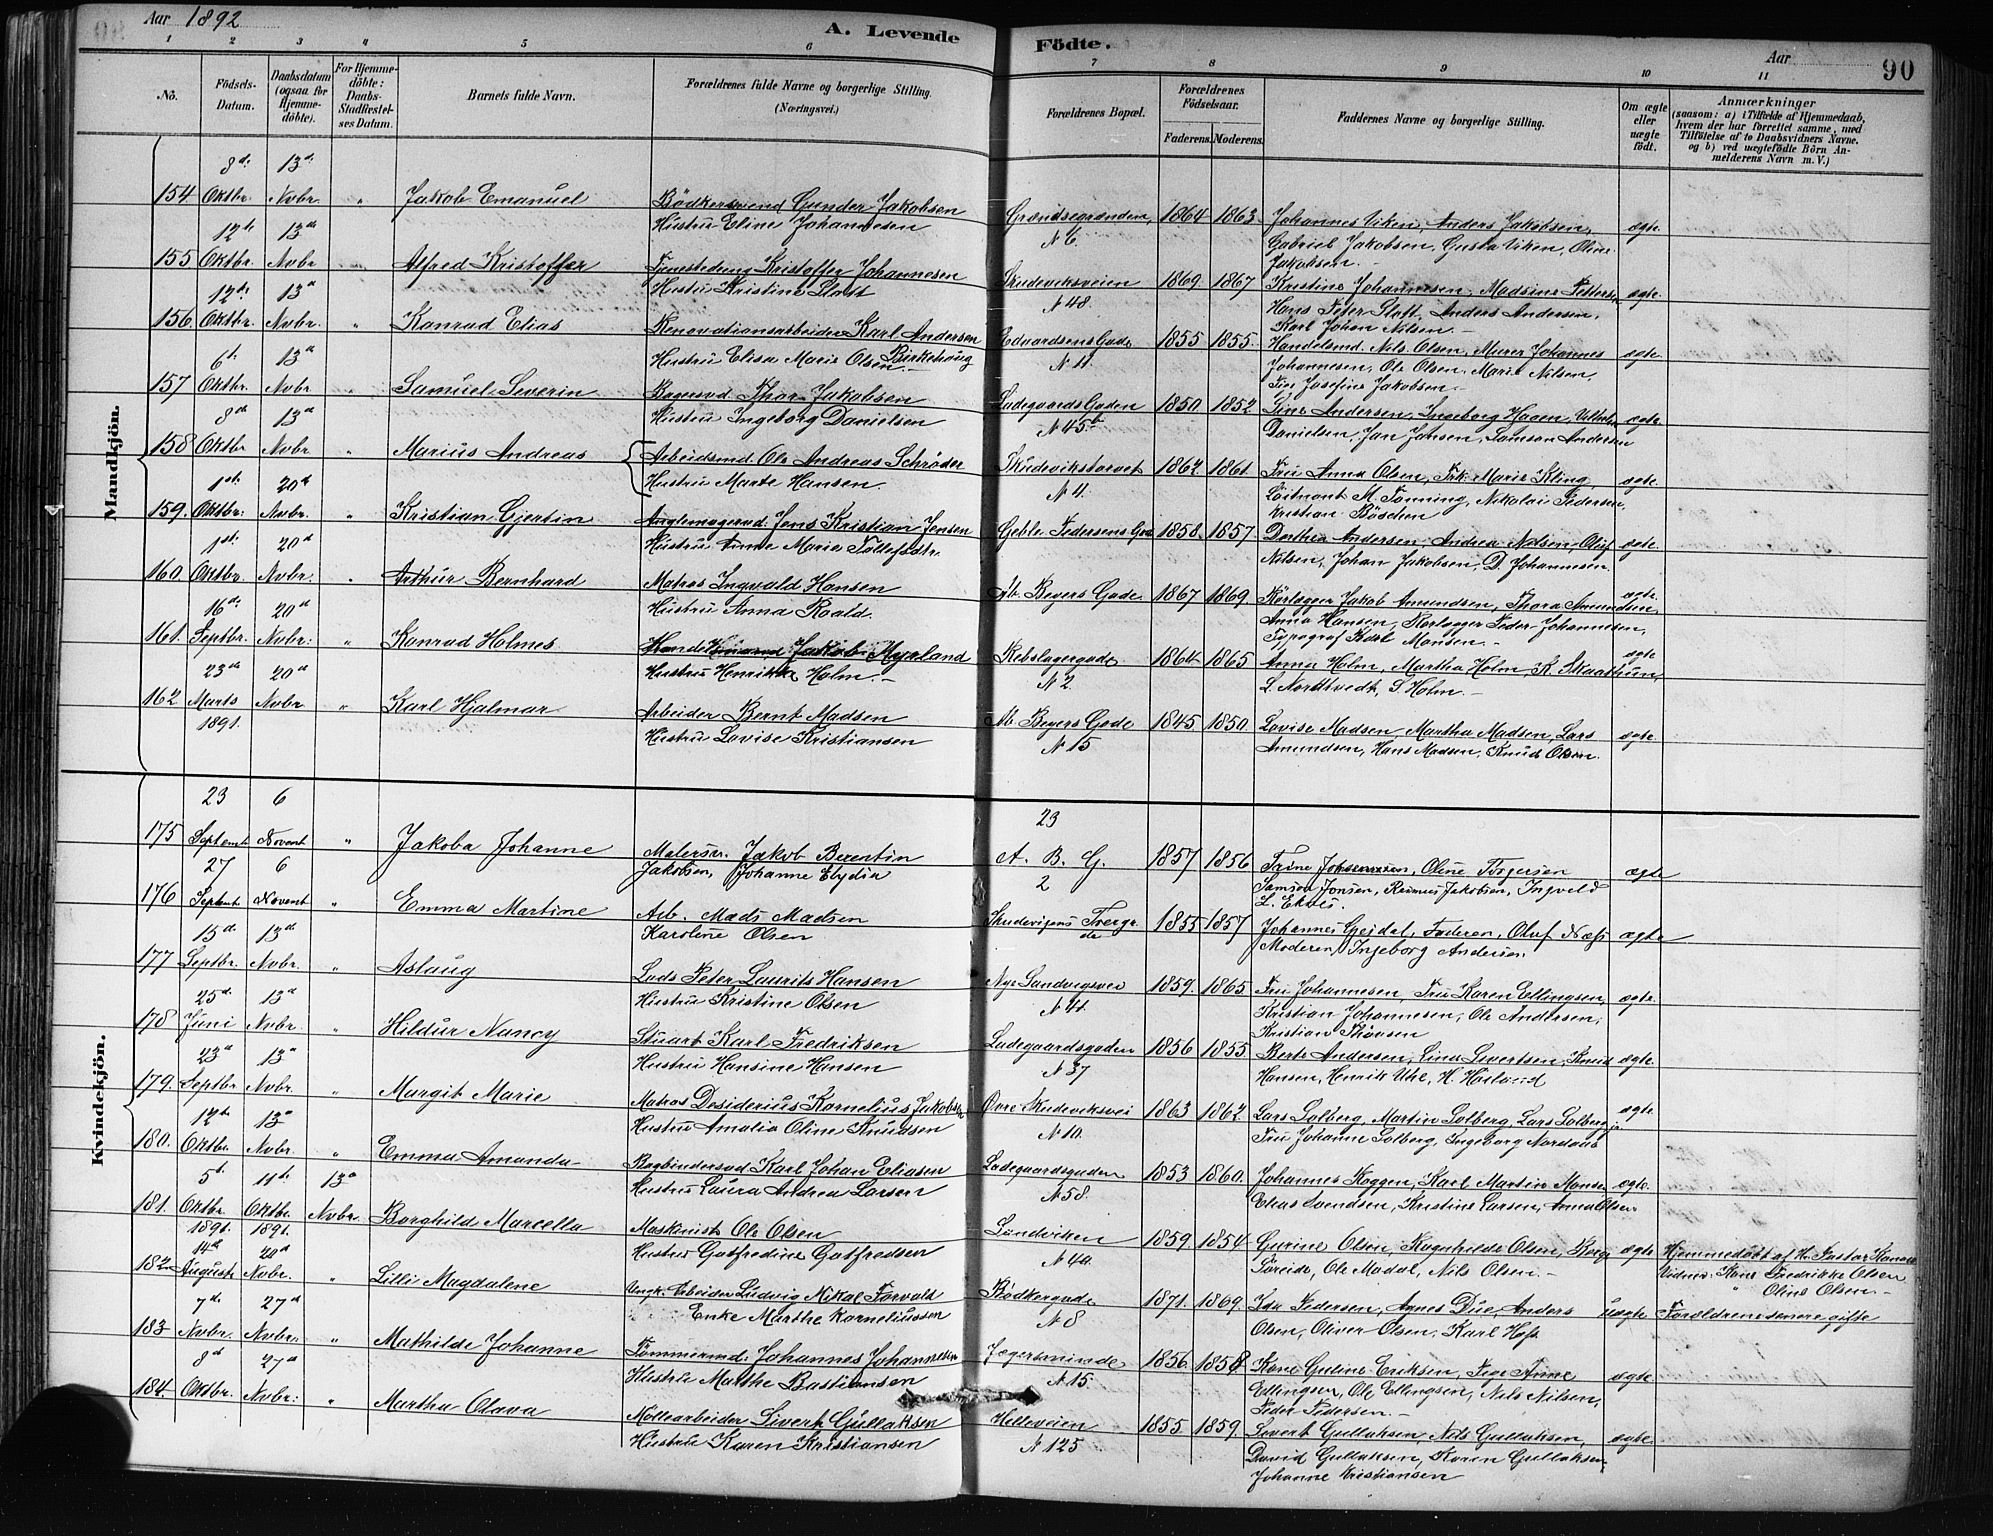 Aar 1892
A. Levende Födte.
Aar
90
1 2 3 4 5 6 7 8 9 10 11
No.
Födsels-Datum.
Daabsdatum (ogsaa for Hjemme-döbte).
For Hjemme-döbte: Daabs-Stadfæstel-ses Datum.
Barnets fulde Navn.
Forældrenes fulde Navne og borgerlige Stilling. (Næringsvei.)
Forældrenes Bopæl.
Forældrenes Födselsaar.
Faderens. Moderens.
Faddernes Navne og borgerlige Stilling.
Om ægte eller uægte födt.
Anmærkninger
(saasom: a) i Tilfælde af Hjemmedaab,
hvem der har forrettet samme, med
Tilföielse af to Daabsvidners Navne.
og b) ved uægtefödte Börn An-
melderens Navn m. V.)
Mandkjön.
8de 13de
154 Oktbr. Nvbr. " Jakob Emanuel Bödkersvend Gunder Jakobsen Grændsegrænden 1864 1863 Johannes Viken, Anders Jakobsen, ægte
Hustru Eline Johannesen N 6. Gabriel Jakobsen, Gusta Viken, Oline
Jakobsen.
12te 13de
155 Oktbr. Nvbr. Alfred Kristoffer Kristoffer Johannesen Skudeviksveien 1869 1867 Kristine Johannesen, Madsine Pettersen ægte
Hustru Kristine Slott N 48. Hans Peter Slott, Anders Andersen,
Karl Johan Nilsen.
12te 13de
156 Oktbr. Nvbr. " Konrad Elias Renovationsarbeider Karl Andersen Edvardsens Gade 1855 1855 Handelsmd. Nils Olsen, Murer Johannes ægte
Hustru Elisa Marie Olsen Birkehaug N 11. Johannesen, Ole Olsen, Marie Nilsen,
Pige Josefine Jakobsen
6te 13de
157 Oktbr. Nvbr. " Samuel Severin Bagersvd. Thor Jakobsen Ladegaards Gaden 1850 1852 Sine Andersen, Ingeborg Hagen, ægte
Hustru Ingeborg Danielsen N 45b Danielsen, Jan Jansen, Samson Andersen
8de 13de
158 Oktbr. Nvbr. " Marius Andreas Arbeidsmd. Ole Andreas Schröder Skudevikstorvet 1862 1861 Fru Anna Olsen, Frk. Marie Kling, ægte
Hustru Marte Hansen N 4. Löitnant M. Fönning, Nikolai Pedersen,
Kristian Böschen
1ste 20de
159 Oktbr. Nvbr. " Kristian Gjertin Jens Kristian Jensen Geble Pedersens Gade 1858 1857 Dorthea Andersen, Andrea Nilsen, Oluf ægte
Hustru Anne Marie Nilsen, Johan Jakobsen, D. Johannesen.
1ste 20de
160 Oktbr. Nvbr. " Arthur Bernhard Matros Ingvald Hansen Ab. Beyers Gade 1867 1869 Jakob Amundsen, Thora Amundsen, ægte
Hustru Anna Roald. Anna Hansen, Peder Johannesen,
Typograf Karl Monsen.
16de 20de
161 Septbr. Nvbr. " Konrad Holmes Jakob Myrland Rebslagergade 1864 1865 Anna Holm, Martha Holm, K. Skaathun, ægte
Hustru Henrikka Holm. N 2. L. Nordtvedt, S. Holm.
23de 20de
162 Marts Nvbr. " Karl Hjalmar Arbeider Bernt Madsen Ab. Beyers Gade 1845 1850 Lovise Madsen, Martha Madsen, Lars ægte
1891. Hustru Lovise Kristiansen N 15 Amundsen, Hans Madsen, Knud Olsen.
Kvindekjön.
23 6 23
175 Septemb Novemb " Jakoba Johanne Malersv. Jakob Berentin A. B. G. 1857 1856 Trine Johannesen, Oline Torgersen ægte
Jakobsen, Johanne Elydia 2 Samson Jonsen, Rasmus Jakobsen, Ingveld
L. Eknes.
27 6
176 Septemb Novemb " Emma Martine Arb. Mads Madsen Skudevigens Tvergade 1855 1857 Johannes Geidal, Faderen, Oluf Næss ægte
Karoline Olsen Moderen, Ingeborg Andersen
15de 13de
177 Septbr. Nvbr. " Aslaug Lods Peter Laurits Hansen Nye Sandvigsvei 1859 1865 Fru Johannesen, Fru Karen Ellingsen, ægte
Hustru Kristine Olsen N 41. Kristian Johannesen, Ole Andersen,
Kristian Thönsen
25de 13de
178 Juni Nvbr. " Hildur Nancy Stuart Karl Fredriksen Ladegaardsgaden 1856 1855 Berte Andersen, Lina Sivertsen, Knud ægte
Hustru Hansine Hansen N 37 Hansen, Henrik Uhl, H. Höiland
23de 13de
179 Septbr. Nvbr. " Margit Marie Matros Desiderius Kornelius Jakobsen Övre Skudeviksvei 1863 1862 Lars Solberg, Martin Solberg, Lars Solberg jr. ægte
Hustru Amalia Oline Knudsen N 10. Fru Johanne Solberg, Ingeborg Nordaas
12te 13de
180 Oktbr. Nvbr. " Emma Amanda Bogbindersvd Karl Johan Eliasen Ladegaardsgaden 1853 1860 Johannes Koggen, Karl Martin Monsen ægte
Hustru Laura Andrea Larsen N 58. Elias Svendsen, Kristine Larsen, Anna Olsen
5te 11te 13de
181 Oktbr. Oktbr. Nvbr. Borghild Marcella Maskinist Ole Olsen Söndviken 1859 1854 Gurine Olsen, Ragnhilde Olsen, ægte Hjemmedöbt af Hr. Pastor
1891. 1891. Hustru Gotfredine Gotfredsen N 4a. Söreide, Ole Modal, Nils Olsen. Vidner: Kone Fredrikke Olsen
" Oline Olsen.
14de 20de
182 August Nvbr. " Lilli Magdalene Ungk. Arbeider Ludvig Mikal Forvald Bödkergade 1871 1869 Ida Pedersen, Agnes Due, Anders uægte Forældrene senere gifte
Enke Marthe Korneliussen N 8 Olsen, Oliver Olsen, Karl Hop
7de 27de
183 Nvbr. Nvbr. " Mathilde Johanne Tömmermd. Johannes Johannesen Jægersminde 1856 1858 Kone Guline Eriksen, Pige Anne ægte
Hustru Marthe Bastiansen N 15. Ellingsen, Ole Ellingsen, Nils Nilsen,
Peder Pedersen.
8de 27de
184 Oktbr. Nvbr. " Martha Olava Möllearbeider Sivert Gullaksen Helleveien 1855 1859 Sivert Gullaksen, Nils Gullaksen, ægte
Hustru Karen Kristiansen N 125 David Gullaksen, Karen Gullaksen,
Johanne Kristiansen